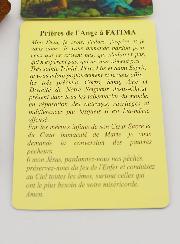 Prières de l'Ange à FATIMA
Mon Dieu, je crois, j'adore, j'espère et je
vous aime. Je vous demande pardon pour
ceux qui ne croient pas, qui n'adorent pas,
qui n'espèrent pas, qui ne vous aiment pas.
Très sainte Trinité, Père, Fils et Saint Esprit,
je vous adore profondément et je vous offre
les très précieux Corps, Sang, Âme et
Divinité de Notre Seigneur Jésus-Christ
présent dans tous les tabernacles du monde,
en réparation des outrages, sacrilèges et
indifférences par lesquels il est Lui-même
offensé.
Par les mérites infinis de son Cœur Sacré et
du Cœur immaculé de Marie je vous
demande la conversion des pauvres
pécheurs.
Ô mon Jésus, pardonnez-nous nos péchés,
préservez-nous du feu de l'Enfer et conduisez
au Ciel toutes les âmes, surtout celles qui
ont le plus besoin de votre miséricorde.
Amen.